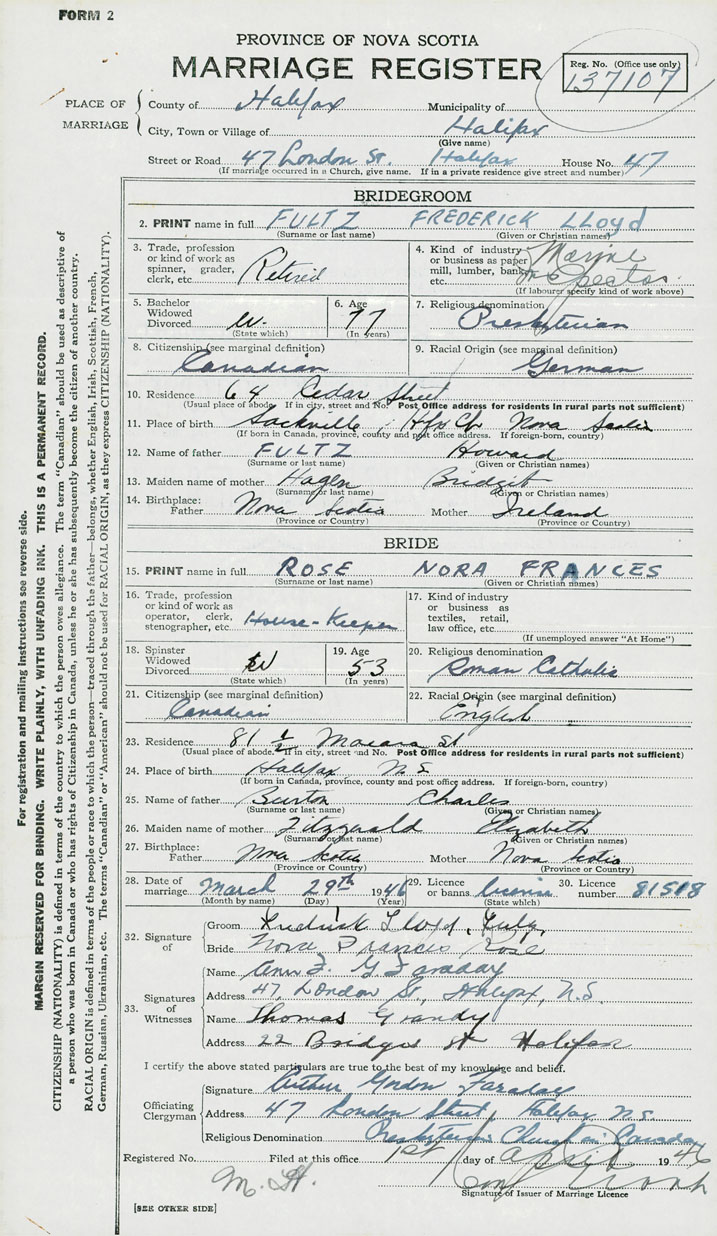 FORM 2
PROVINCE OF NOVA SCOTIA
MARRIAGE REGISTER
Reg. No. (Office use only)
137107
PLACE OF MARRIAGE
County of Halifax Municipality of
City, Town or Village of Halifax
(Give name)
Street or Road 47 London St. Halifax House No. 47
(If marriage occurred in a Church, give name. If in a private residence give street and number)
BRIDEGROOM
2. PRINT name in full FULTZ FREDERICK LLOyd
(Surname or last name) (Given or Christian names)
3. Trade, profession or kind of work as spinner, grader, clerk, etc. Retired
4. Kind of industry or business as paper mill, lumber, bank, etc. Marine
(If labourer specify kind of work above)
5. Bachelor Widowed Divorced W.
(State which)
6. Age 77
(In years)
7. Religious denomination
Presbyterian
8. Citizenship (see marginal definition)
Canadian
9. Racial Origin (see marginal definition)
German
10. Residence 64 Cedar Street
(Usual place of abode. If in city, street and No. Post Office address for residents in rural parts not sufficient)
11. Place of birth Sackville Hfx Co Nova Scotia
(If born in Canada, province, county and post office address. If foreign-born, country)
12. Name of father FULTZ Howard
(Surname or last name) (Given or Christian names)
13. Maiden name of mother Hagen Bridgit
(Surname or last name) (Given or Christian names)
14. Birthplace: Father Nova Scotia Mother Ireland
(Province or Country) (Province or Country)
BRIDE
15. PRINT name in full ROSE NORA FRANCES
(Surname or last name) (Given or Christian names)
16. Trade, profession or kind of work as operator, clerk, stenographer, etc. House-Keeper
17. Kind of industry or business as textiles, retail, law office, etc.
(If unemployed answer "At Home")
18. Spinster Widowed Divorced W
(State which)
19. Age 53
(In years)
20. Religious denomination
Roman Catholic
21. Citizenship (see marginal definition)
Canadian
22. Racial Origin (see marginal definition)
English
23. Residence 81 1/2 Macara St
(Usual place of abode. If in city, street and No. Post Office address for residents in rural parts not sufficient)
24. Place of birth Halifax N S
(If born in Canada, province, county and post office address. If foreign-born, country)
25. Name of father Burton Charles
(Surname or last name) (Given or Christian names)
26. Maiden name of mother Fitzgerald Elizabeth
(Surname or last name) (Given or Christian names)
27. Birthplace: Father Nova Scotia Mother Nova Scotia
(Province or Country) (Province or Country)
28. Date of marriage March 29th 1946
(Month by name) (Day) (Year)
29. Licence or banns License
(State which)
30. Licence number 81518
32. Signature of
Groom Fredrick Lloyd Fultz
Bride Nora Frances Rose
33. Signatures of Witnesses
Name Ann F. G Faraday
Address 47, London St., Halifax, N.S.
Name Thomas Grandy
Address 22 Bridges St Halifax
I certify the above stated particulars are true to the best of my knowledge and belief.
Officiating Clergyman
Signature Arthur Gordon Faraday
Address 47 London Street, Halifax N.S.
Religious Denomination Presbyterian Church in Canada
Registered No. Filed at this office 1st day of April 1946
M. H.
Signature of Issuer of Marriage Licence
[SEE OTHER SIDE]
For registration and mailing instructions see reverse side.
MARGIN RESERVED FOR BINDING. WRITE PLAINLY, WITH UNFADING INK. THIS IS A PERMANENT RECORD.
CITIZENSHIP (NATIONALITY) is defined in terms of the country to which the person owes allegiance. The term "Canadian" should be used as descriptive of
a person who was born in Canada or who has rights of Citizenship in Canada, unless he or she has subsequently become the citizen of another country.
RACIAL ORIGIN is defined in terms of the people or race to which the person—traced through the father—belongs, whether English, Irish, Scottish, French,
German, Russian, Ukrainian, etc. The terms "Canadian" or "American" should not be used for RACIAL ORIGIN, as they express CITIZENSHIP (NATIONALITY).